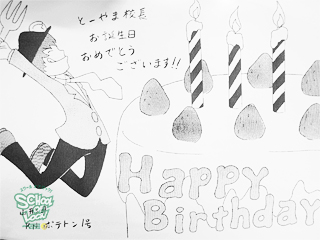 とーやま校長
お誕生日
おめでとう
ございます!!
Happy
Birthday
School
of Lock!
ポテトン1号